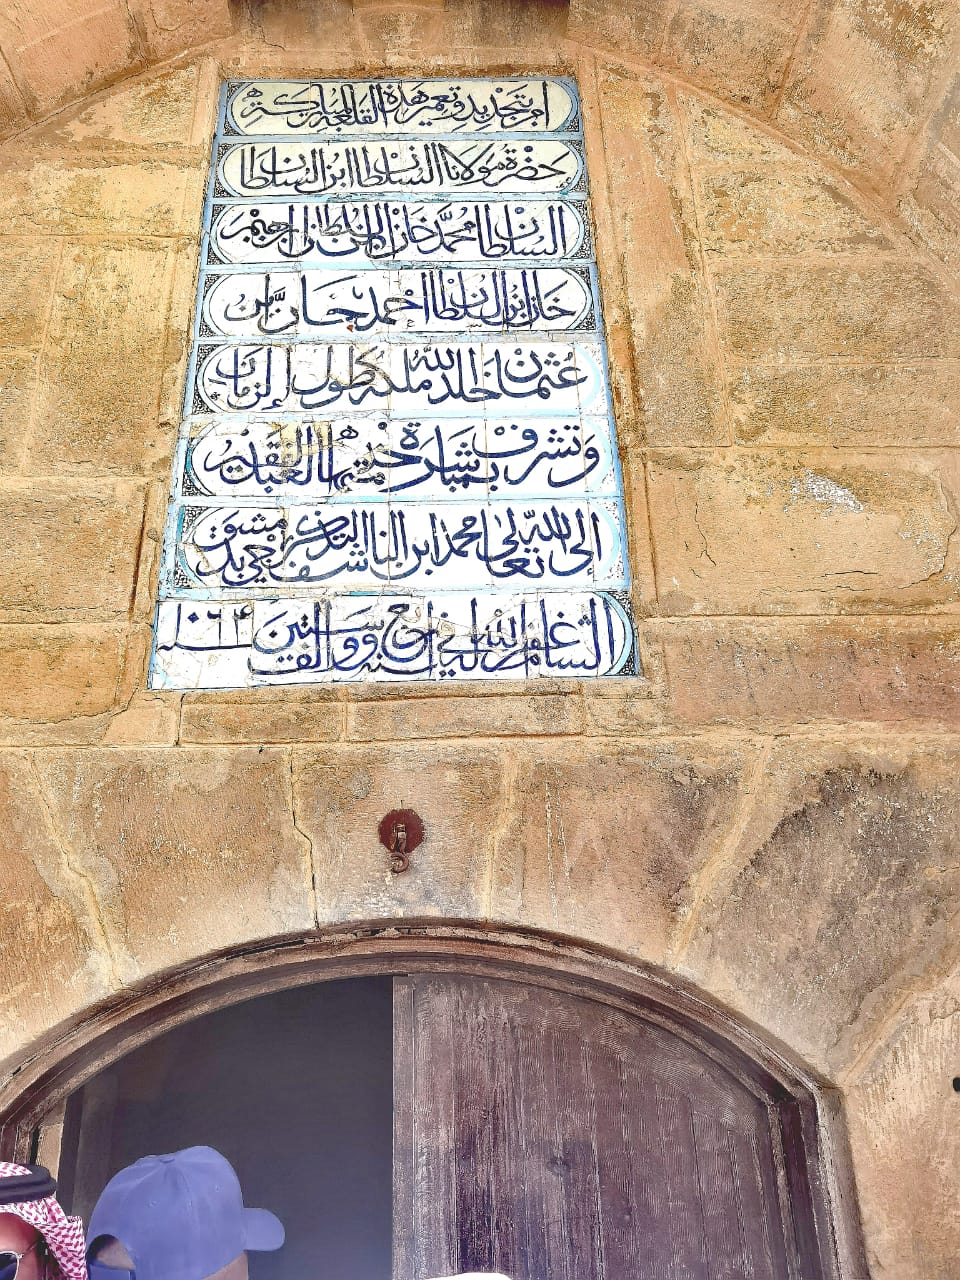 امر بتجديد وتعمير هذه القلعة المباركة
حضرة مولانا السلطان ابن السلطان
السلطان محمد خان ابن السلطان ابرهيم
خان ابن السلطان احمد خان بن
عثمان خلد الله ملكه طول الزمان
وتشرف بمباشرة خدمتها العبد الفقير
إلى الله تعالى محمد ابن الناشف يجى بدمشق
الشام غفر الله لهما في سنة وستين والف سنة ١٠٦٤